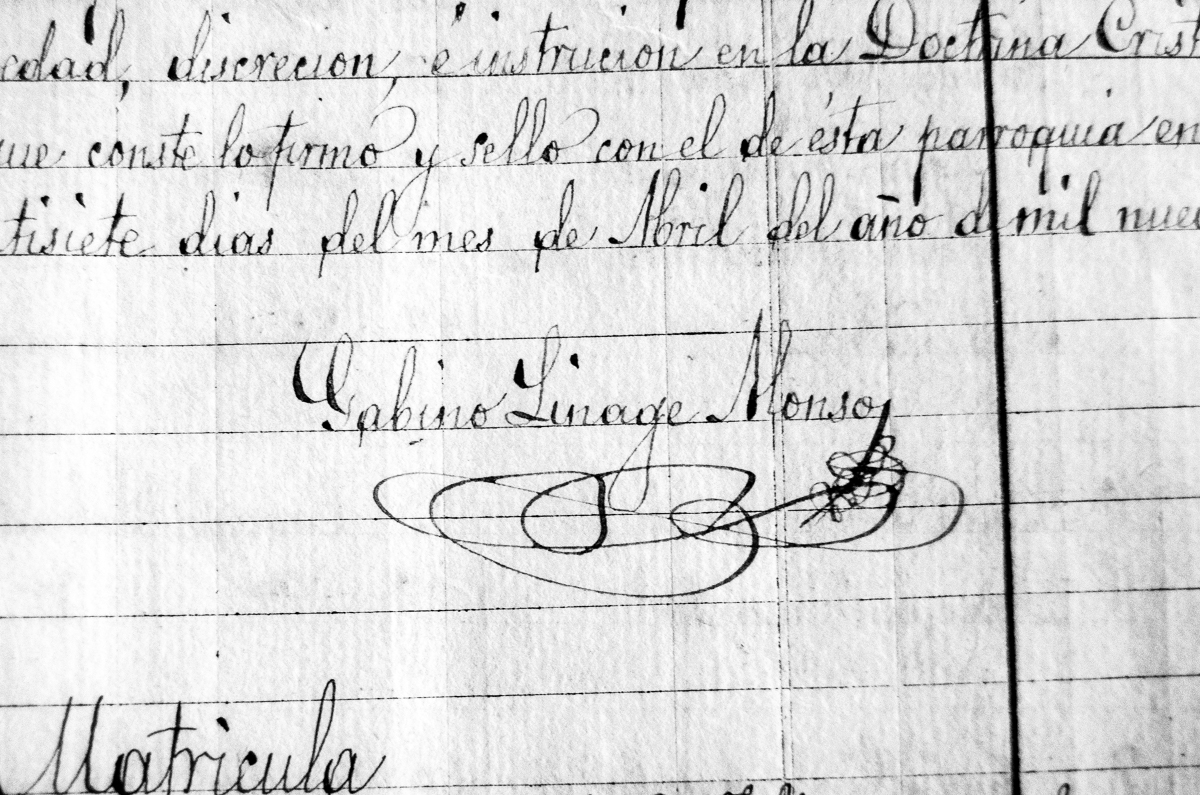 edad, discrecion, é instrucion en la Doctrina Crist
ue conste lo firmó y sello con el de ésta parroquia en
tisiete dias del mes de Abril del año d mil nue
Gabino Linage Alonso
Matricula